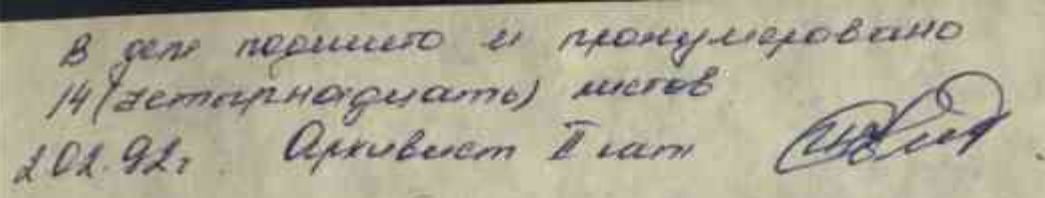 В деле подшито и пронумеровано
14 (четырнадцать) листов
2.02.92г. Архивист II кат